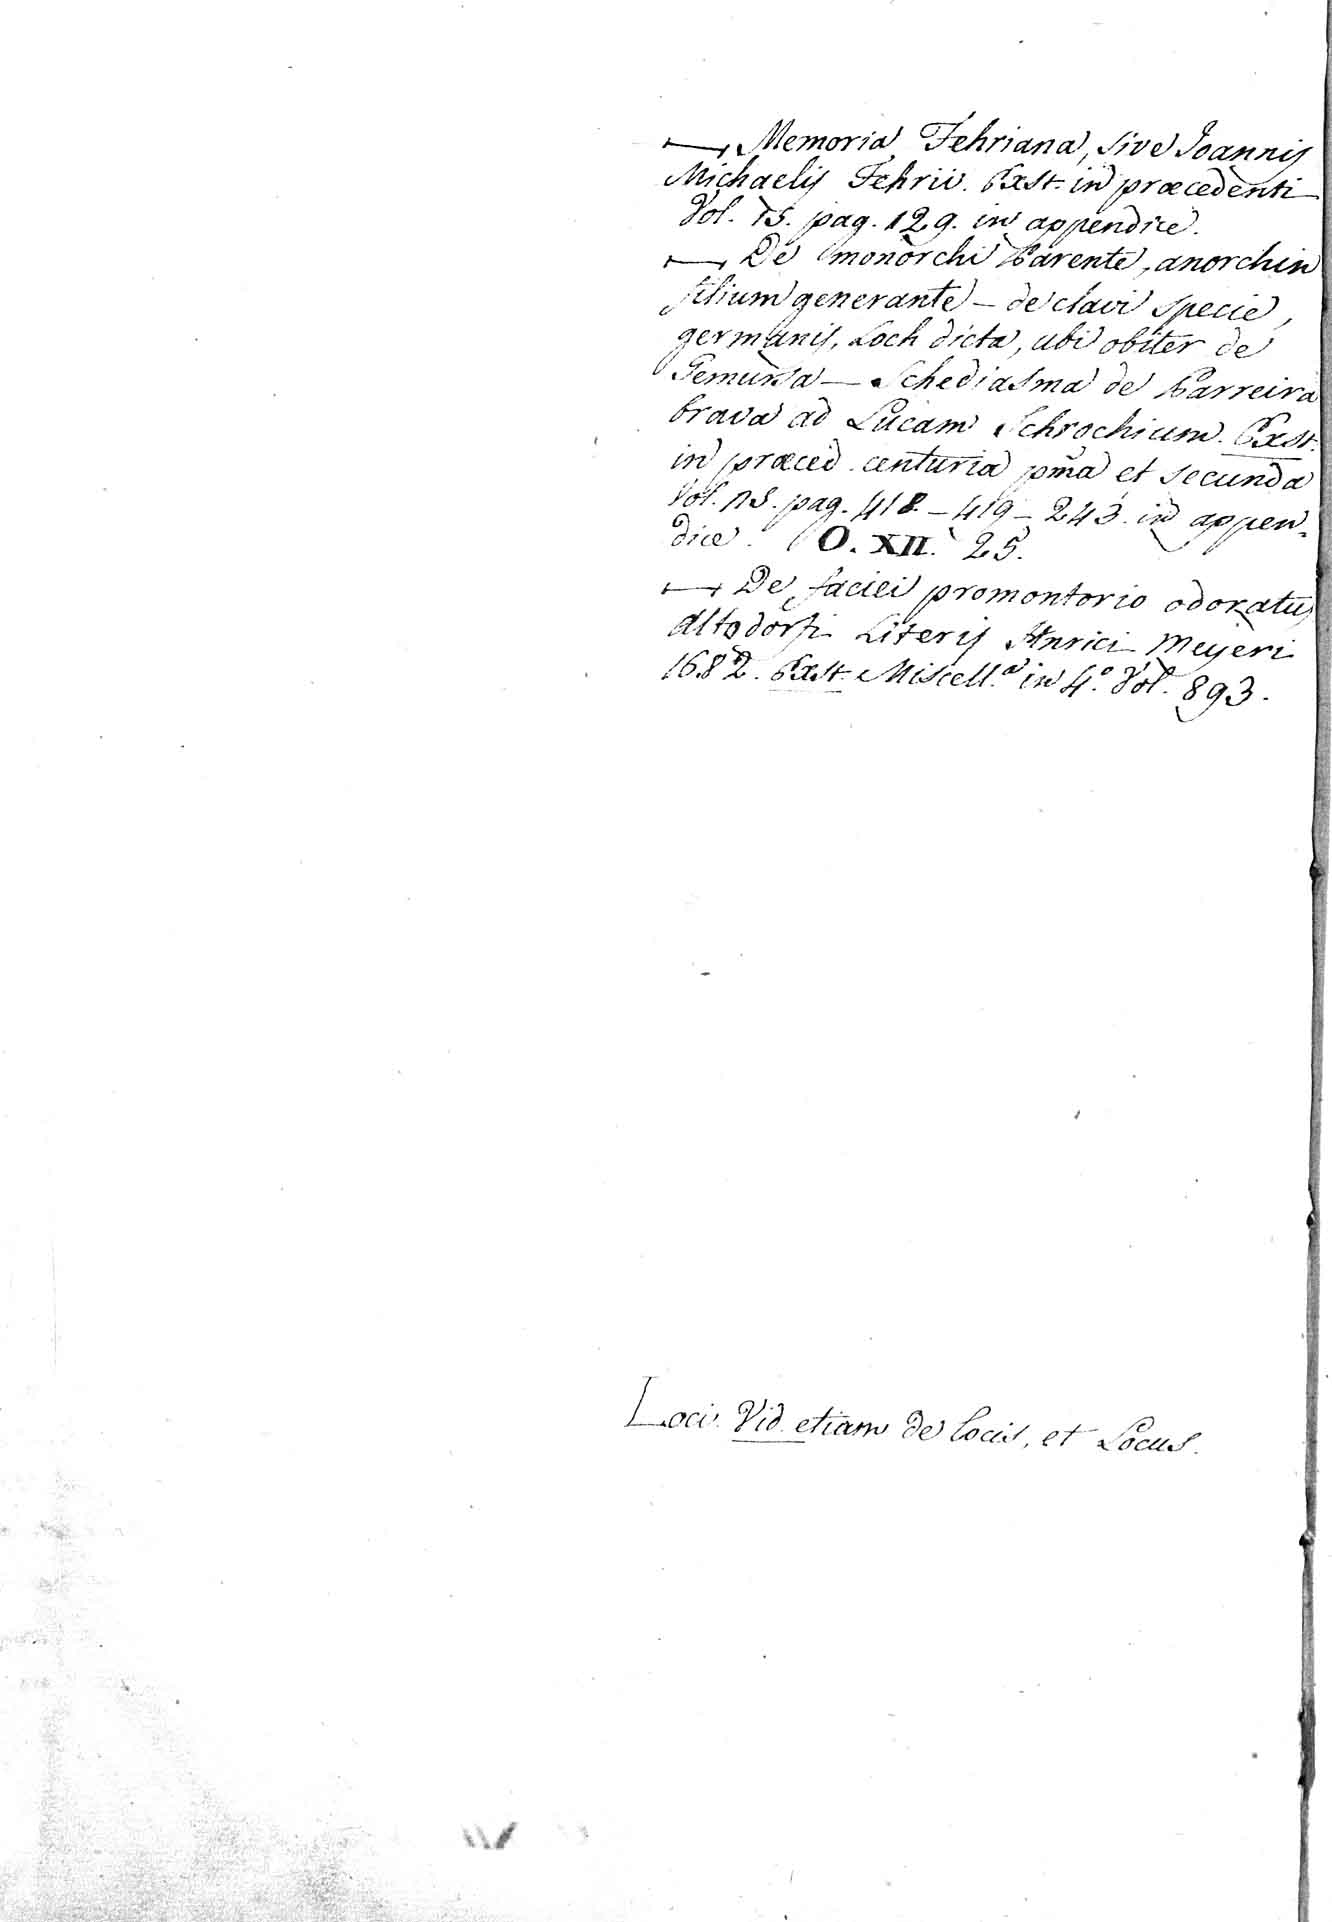 — Memoria Fehriana, sive Joannis
Michaelis Fehrii. Exst. in præcedenti
Vol. 15. pag. 129. in appendice.
— De monorchi Parente, anorchin
filium generante — de clavi specie,
germanis, Loch dicta, ubi obiter de
Gemursa — Schediasma de Parreira
brava ad Lucam Schrochium. Exst.
in præced. centuria pma et secunda
Vol. 15. pag. 418. — 419 — 243. in appen-
dice. O. XII. 25.
— De faciei promontorio odoratus
Altdorfi Literis Hnrici Meyeri
1682. Exst. Miscell.a in 4.o Vol. 893.
Loci. Vid. etiam de locis, et Locus.